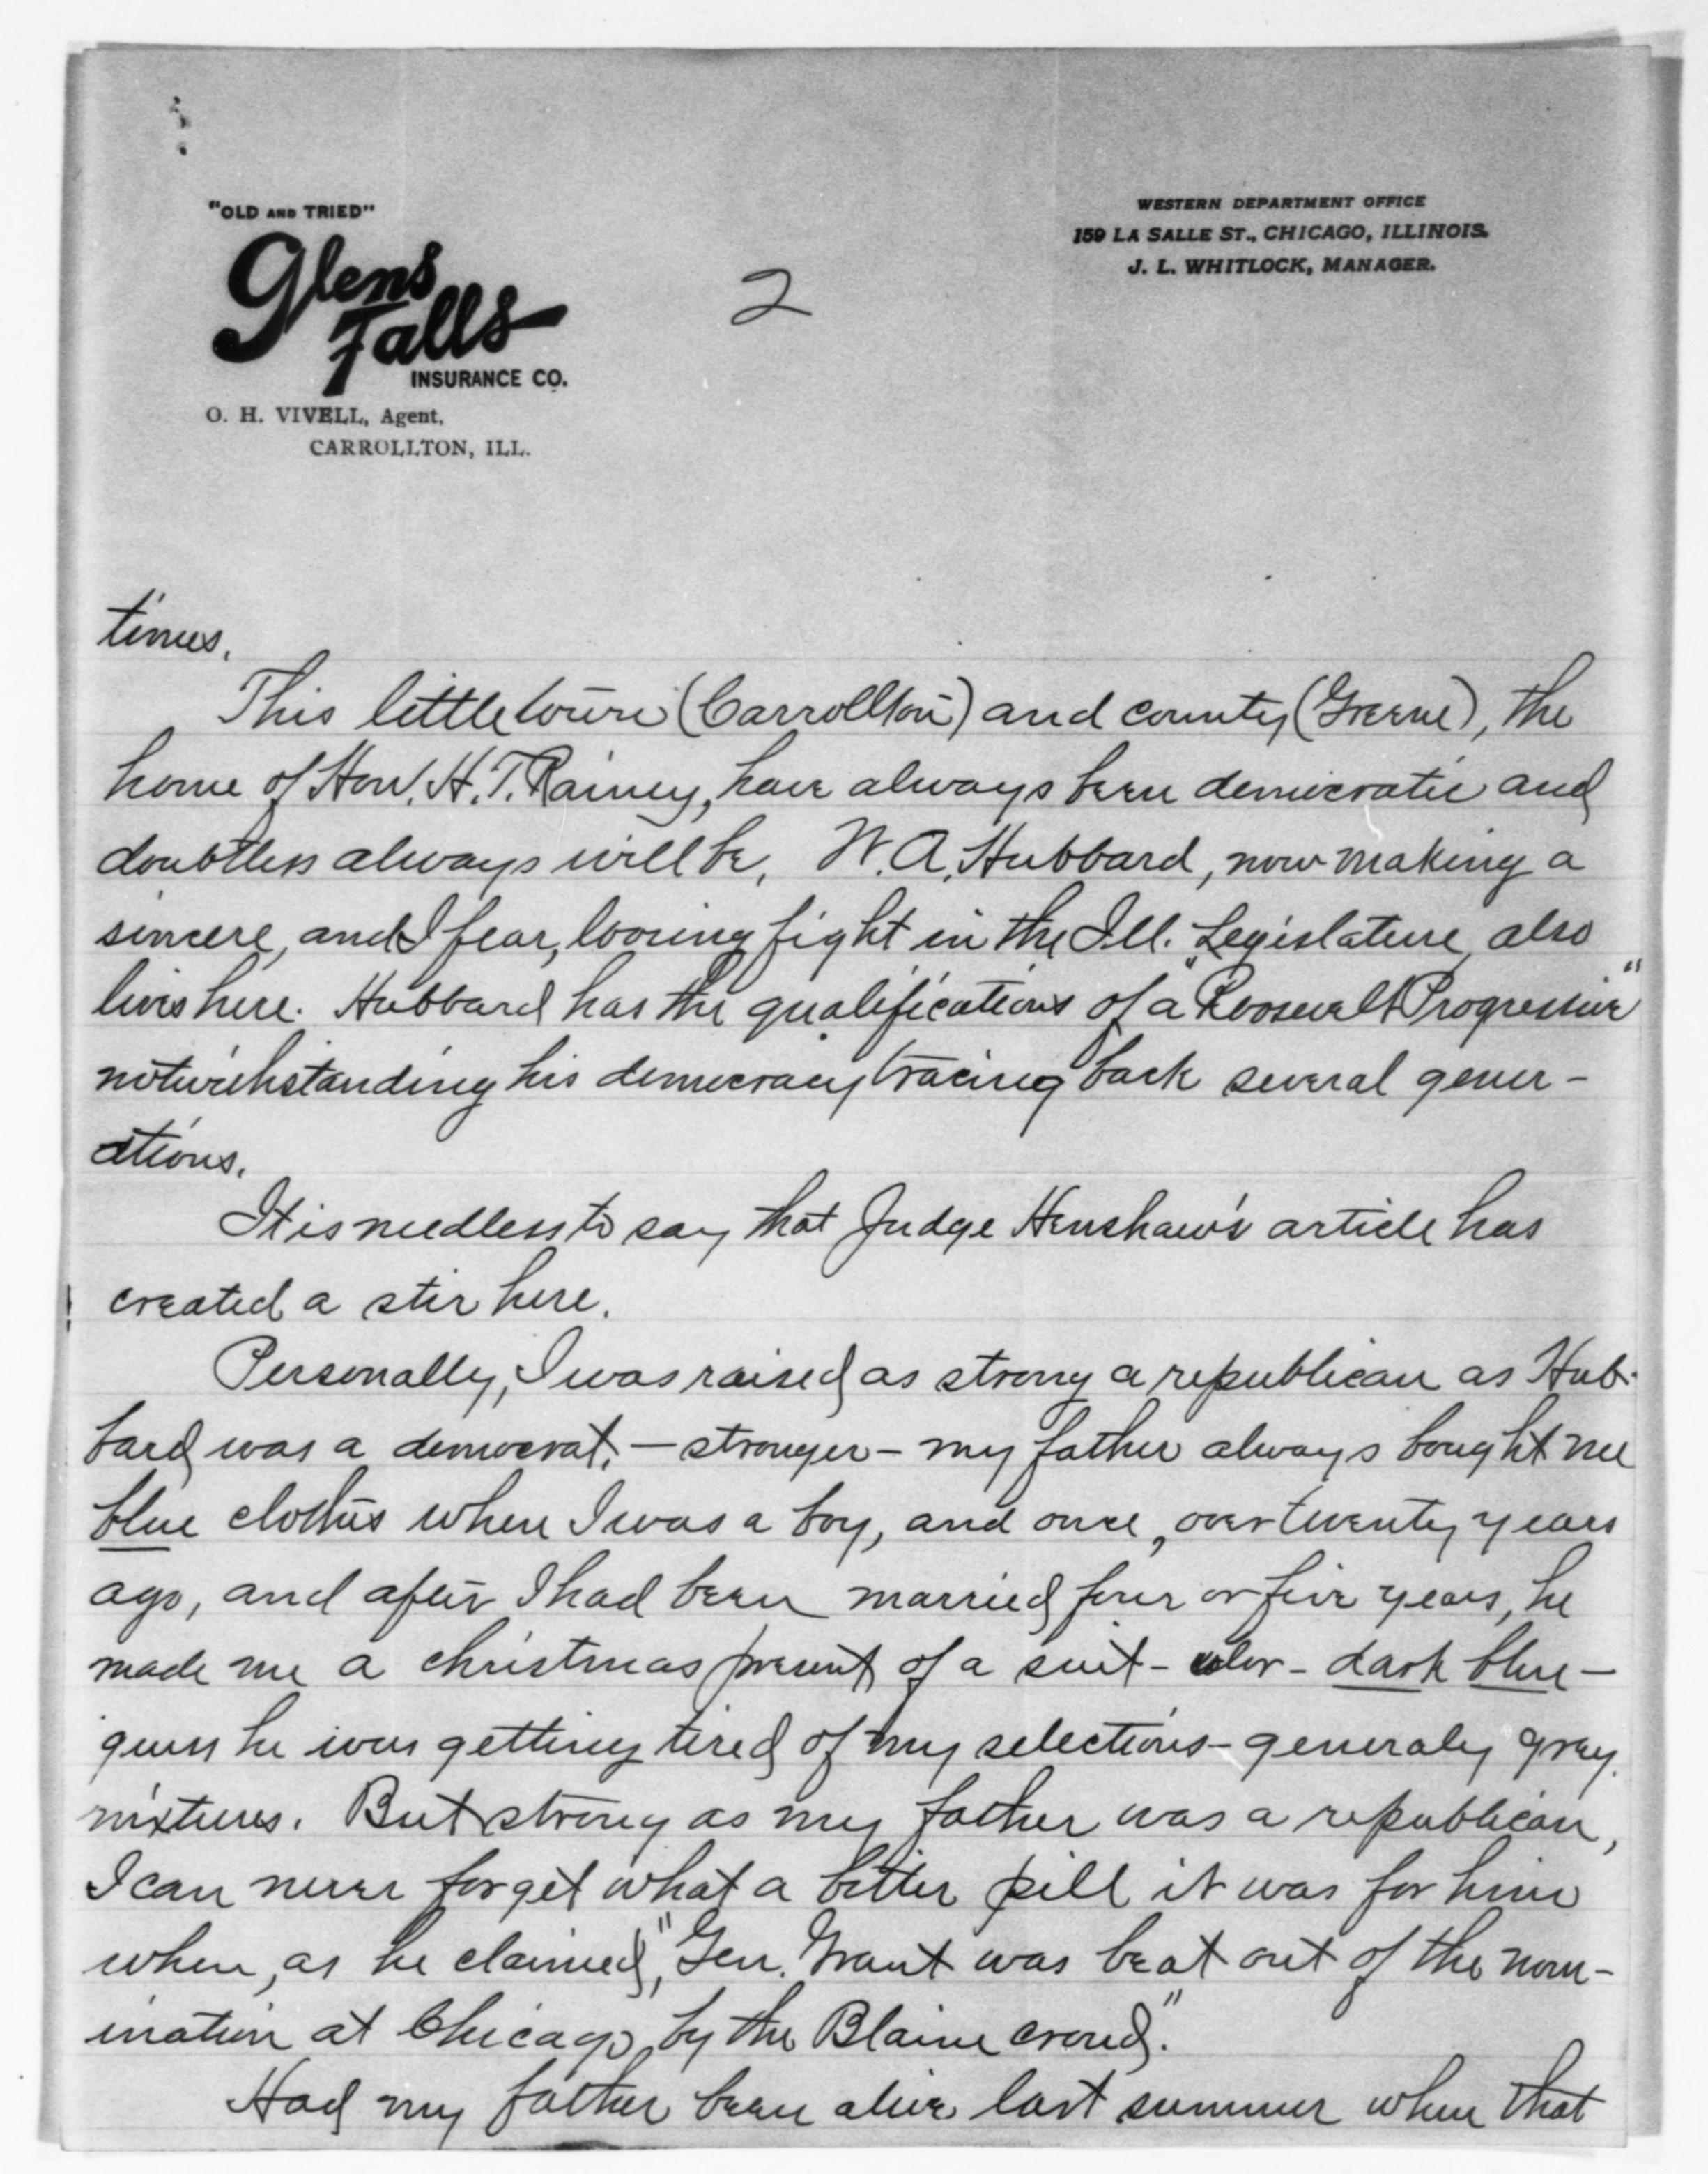 "OLD AND TRIED"
Glens
Falls
INSURANCE CO.
O. H. VIVELL, Agent,
CARROLLTON, ILL.
2
WESTERN DEPARTMENT OFFICE
159 LA SALLE ST., CHICAGO, ILLINOIS.
J. L. WHITLOCK, MANAGER.
times.
This little town (Carrollton) and county (Greene), the
home of Hon. H. T. Rainey, have always been democratic and
doubtless always will be. W. A. Hubbard, now making a
sincere, and I fear, loosing fight in the Ill. Legislature, also
lives here. Hubbard has the qualifications of a "Roosevelt Progressive"
notwithstanding his democracy tracing back several gener-
ations.
It is needless to say that Judge Henshaw's article has
created a stir here.
Personally, I was raised as strong a republican as Hub-
bard was a democrat, - stronger - my father always bought me
blue clothes when I was a boy, and once, over twenty years
ago, and after I had been married four or five years, he
made me a christmas present of a suit - color - dark blue -
guess he was getting tired of my selections - generaly gray
mixtures. But strong as my father was a republican,
I can never forget what a bitter pill it was for him
when, as he claimed, "Gen. Grant was beat out of the nom-
ination at Chicago, by the Blaine crowd."
Had my father been alive last summer when that